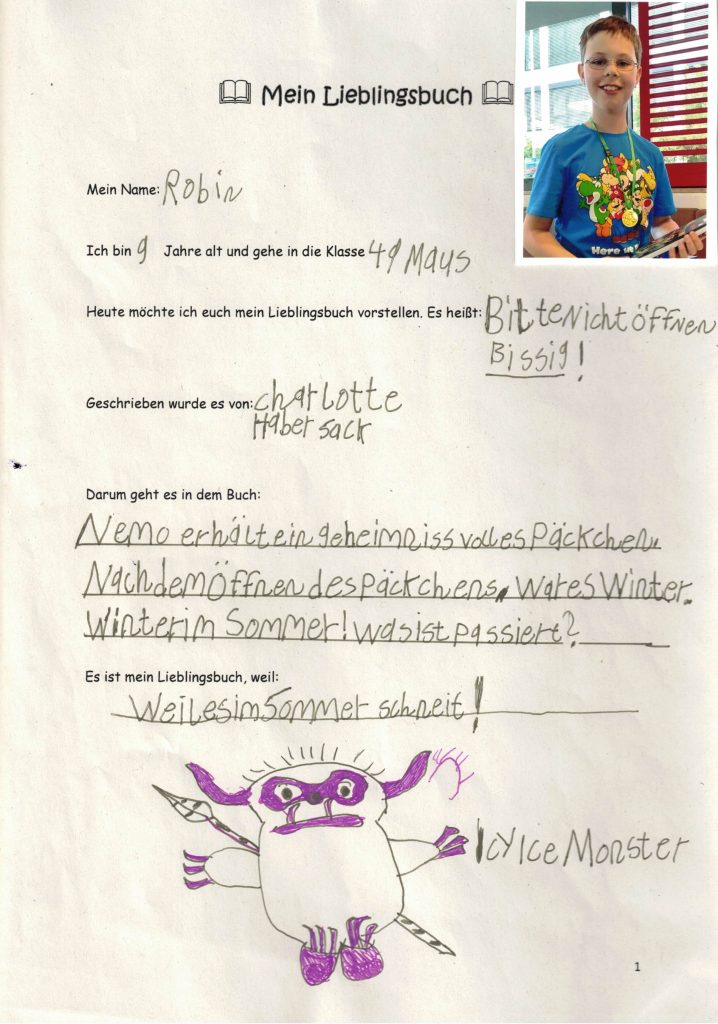 Mein Lieblingsbuch
Mein Name: Robin
Ich bin 9 Jahre alt und gehe in die Klasse 4q Maus
Heute möchte ich euch mein Lieblingsbuch vorstellen. Es heißt: Bitte Nicht öffnen
Bissig!
Geschrieben wurde es von: charlotte
Haber sack
Darum geht es in dem Buch:
Nemo erhält ein geheimniss volles Päckchen.
Nachdem Öffnen des Päckchens, war es Winter.
Winter im Sommer! was ist passiert?
Es ist mein Lieblingsbuch, weil:
Weil es im Sommer schneit!
Icy Ice Monster
1